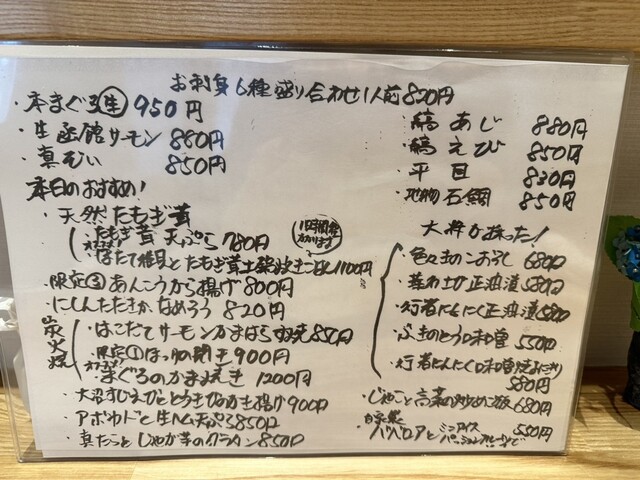 お刺身6種盛り合わせ1人前800円
・本まぐろ生 950円
・生函館サーモン 880円
・真そい 850円
・縞あじ 880円
・縞えび 850円
・平目 830円
・地物石鯛 850円
本日のおすすめ!
・天然たもぎ茸
・たもぎ茸天ぷら 780円
・ほたて稚貝とたもぎ茸土鍋炊きごはん1100円
・限定③あんこうから揚げ 800円
・にしんたたきかなめろう 820円
炭火焼
・はこだてサーモンかまはらす焼 850円
・限定①ほっけの開き 900円
・まぐろのかま焼き 1200円
・大沼すじえびととうきびのかき揚げ 900円
・アボカドと生ハム天ぷら 850円
・真たことじゃが芋のグラタン 850円
大将が採った!
・色々きのこおろし 680円
・葉わさび正油漬 580円
・行者にんにく正油漬 580円
・ふきのとう味噌 550円
・行者にんにく味噌焼おにぎり
580円
・じゃこと高菜の炒めご飯 680円
自家製
・ババロアとミニアイス 550円